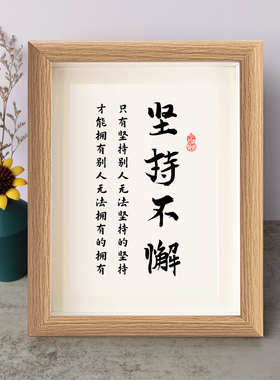 坚持不懈
只有坚持别人无法坚持的坚持
才能拥有别人无法拥有的拥有